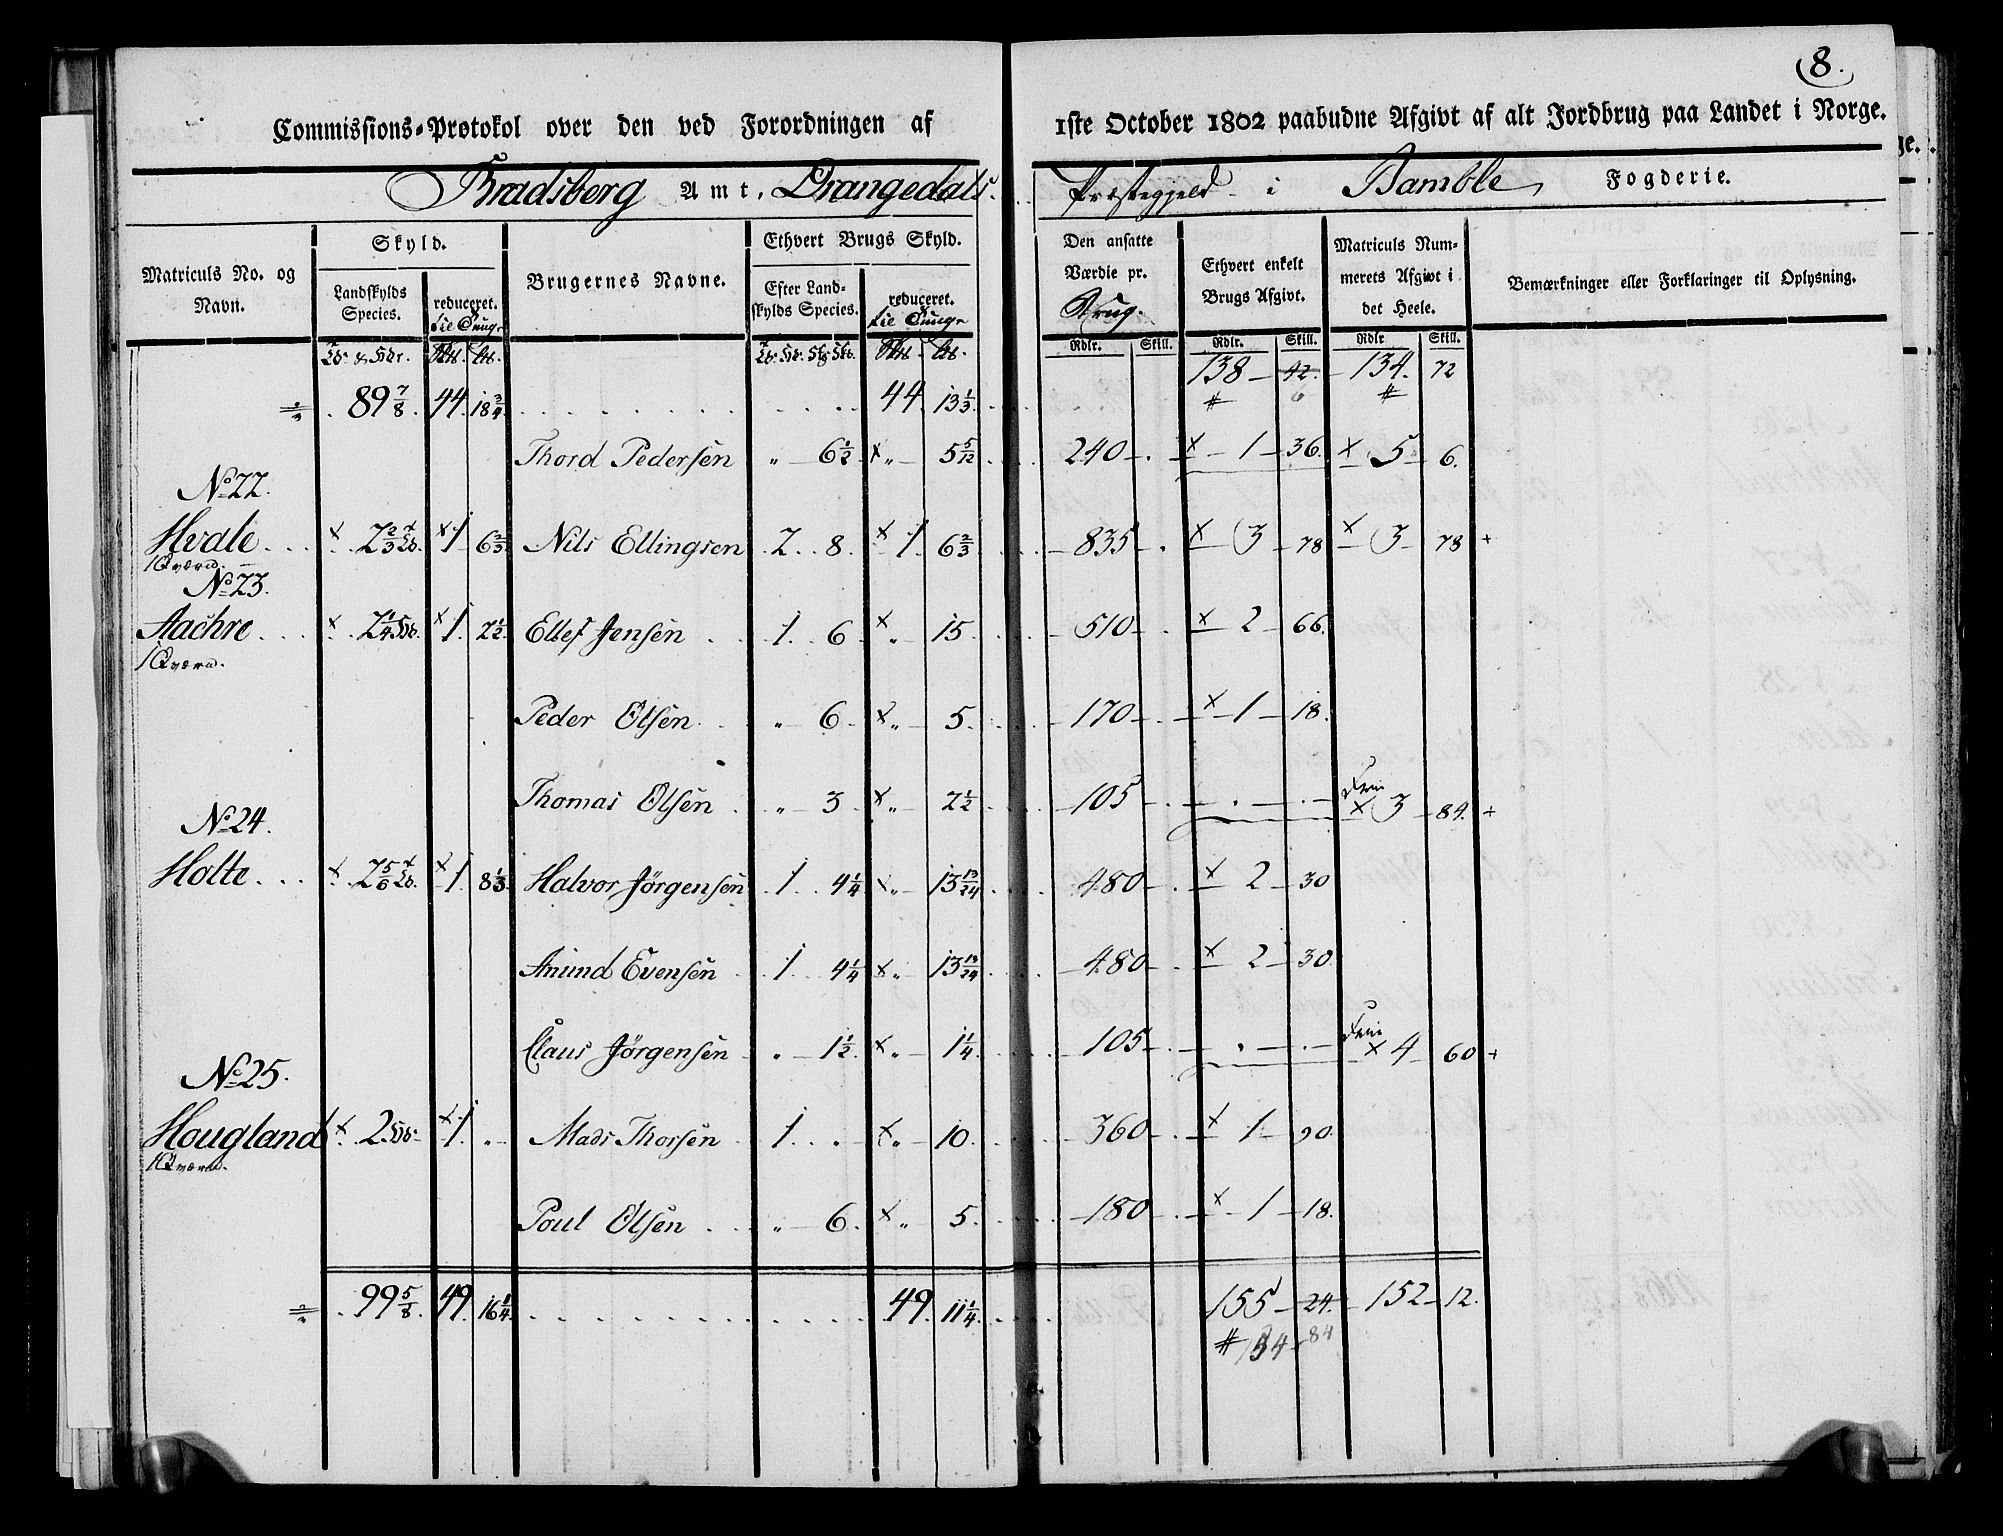 8.
Commissions-Protokol over den ved Forordningen af 1ste October 1802 paabudne Afgivt af alt Jordbrug paa Landet i Norge.
Bradsberg Amt, Drangedals Præstegjeld i Bamble Fogderie.
Matriculs No. og Navn. Skyld. Brugernes Navne. Ethvert Brugs Skyld. Den ansatte Værdie pr. Brug. Ethvert enkelt Brugs Afgivt. Matriculs Nummerets Afgivt i det Heele. Bemærkninger eller Forklaringer til Oplysning.
Landskylds Species. reduceret. til Tunge Efter Landskylds Species. reduceret. til Tunge
Rdlr. Skill. Rdlr. Skill. Rdlr Skill.
138 42. 134. 72
89 7/8 44. 18 3/4 44. 13 1/3 # 6 #
Thord Pedersen " 6 1/2 x " 5 5/12 240 x 1 36. x 5 6.
No 22.
Hvale x 2 2/3 x 1 6 2/3 Nils Ellingsen 2 8 x 1 6 2/3 835 x 3 78 x 3 78 +
1 Qværn.
No 23.
Aachre x 2 1/4 x 1 2 1/2 Ellef Jensen 1 6 x " 15 510 x 2 66.
1 Qværn.
Peder Olsen " 6 x " 5 170 x 1 18.
Thomas Olsen " 3 x " 2 1/2 105 Frie x 3 84. +
No 24.
Holte x 2 5/6 x 1 8 1/3 Halvor Jörgensen 1 4 1/4 x " 13 13/24 480 x 2 30
Anund Evensen 1 4 1/4 x " 13 13/24 480 x 2 30
Claus Jörgensen " 1 1/2 x " 1 1/4 105 Frie x 4 60 +
No 25.
Hougland x 2 x 1 " Mads Thorsen 1 " x " 10 360 x 1 90.
1 Qværn.
Poul Olsen " 6 x " 5 180 x 1 18.
99 5/8 49. 16 1/4 49. 11 1/4 155 24. 152 12.
# 154 84